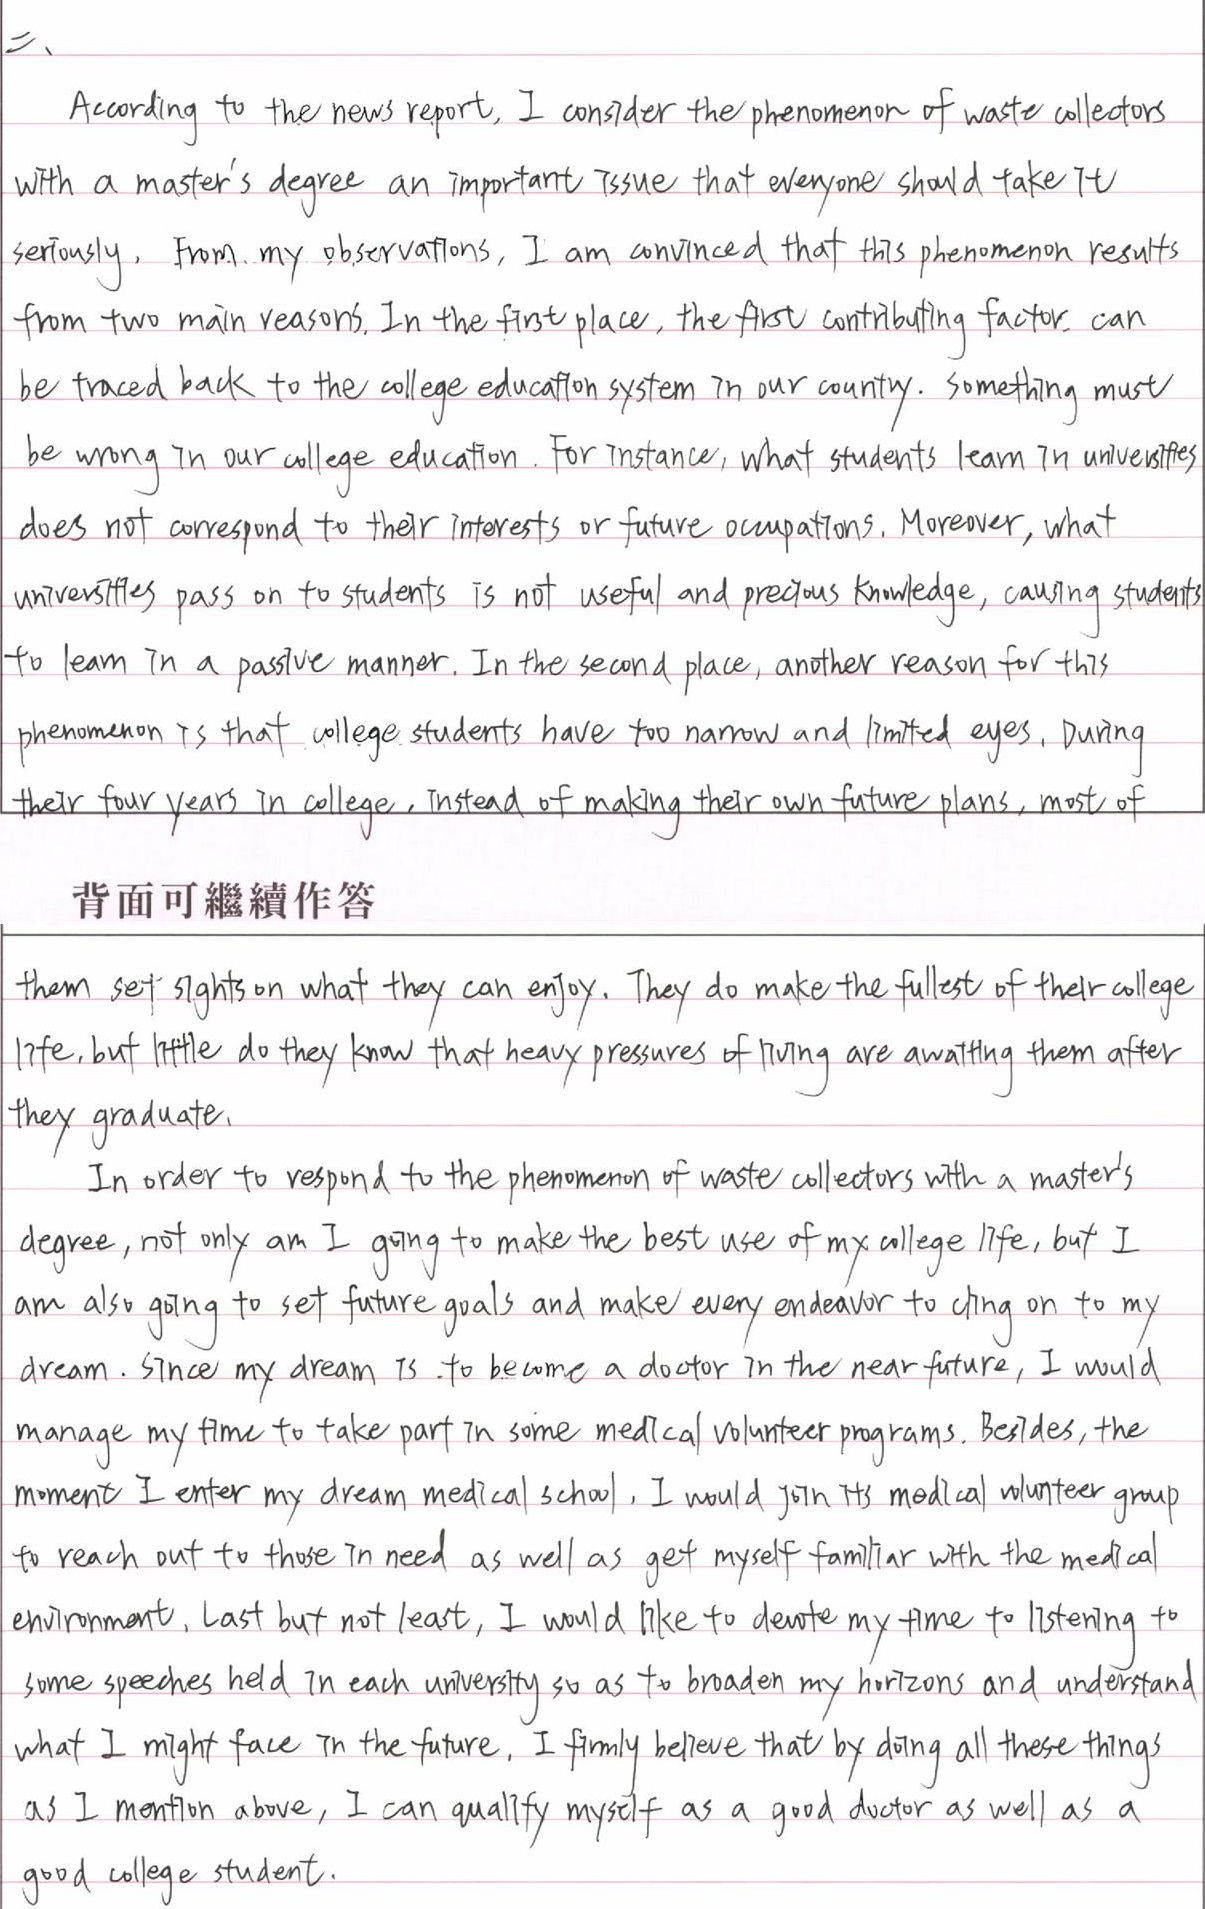 二、
According to the news report, I consider the phenomenon of waste collectors
with a master's degree an important issue that everyone should take it
seriously. From my observations, I am convinced that this phenomenon results
from two main reasons. In the first place, the first contributing factor can
be traced back to the college education system in our country. Something must
be wrong in our college education. For instance, what students learn in universities
does not correspond to their interests or future occupations. Moreover, what
universities pass on to students is not useful and precious knowledge, causing students
to learn in a passive manner. In the second place, another reason for this
phenomenon is that college students have too narrow and limited eyes. During
their four years in college, instead of making their own future plans, most of
背面可繼續作答
them set sights on what they can enjoy. They do make the fullest of their college
life, but little do they know that heavy pressures of living are awaiting them after
they graduate.
In order to respond to the phenomenon of waste collectors with a master's
degree, not only am I going to make the best use of my college life, but I
am also going to set future goals and make every endeavor to cling on to my
dream. Since my dream is to become a doctor in the near future, I would
manage my time to take part in some medical volunteer programs. Besides, the
moment I enter my dream medical school, I would join its medical volunteer group
to reach out to those in need as well as get myself familiar with the medical
environment. Last but not least, I would like to devote my time to listening to
some speeches held in each university so as to broaden my horizons and understand
what I might face in the future. I firmly believe that by doing all these things
as I mention above, I can qualify myself as a good doctor as well as a
good college student.